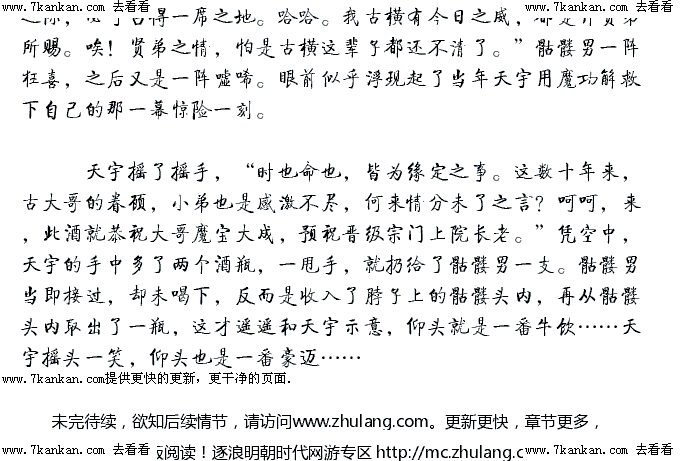 www.7kankan.com 去看看 www.7kankan.com 去看看
所赐。唉！贤弟之情，怕是古横这辈子都还不清了。”骷髅男一阵
狂喜，之后又是一阵嘘唏。眼前似乎浮现起了当年天宇用魔功解救
下自己的那一幕惊险一刻。
天宇摇了摇手，“时也命也，皆为缘定之事。这数十年来，
古大哥的眷顾，小弟也是感激不尽，何来情分未了之言？呵呵，来
，此酒就恭祝大哥魔宝大成，预祝晋级宗门上院长老。”凭空中，
天宇的手中多了两个酒瓶，一甩手，就扔给了骷髅男一支。骷髅男
当即接过，却未喝下，反而是收入了脖子上的骷髅头内，再从骷髅
头内取出了一瓶，这才遥遥和天宇示意，仰头就是一番牛饮……天
宇摇头一笑，仰头也是一番豪迈……
www.7kankan.com提供更快的更新，更干净的页面.
未完待续，欲知后续情节，请访问www.zhulang.com。更新更快，章节更多，
www.7kankan.com 去看看 阅读！逐浪明朝时代网游专区 http://mc.zhulang.co www.7kankan.com 去看看